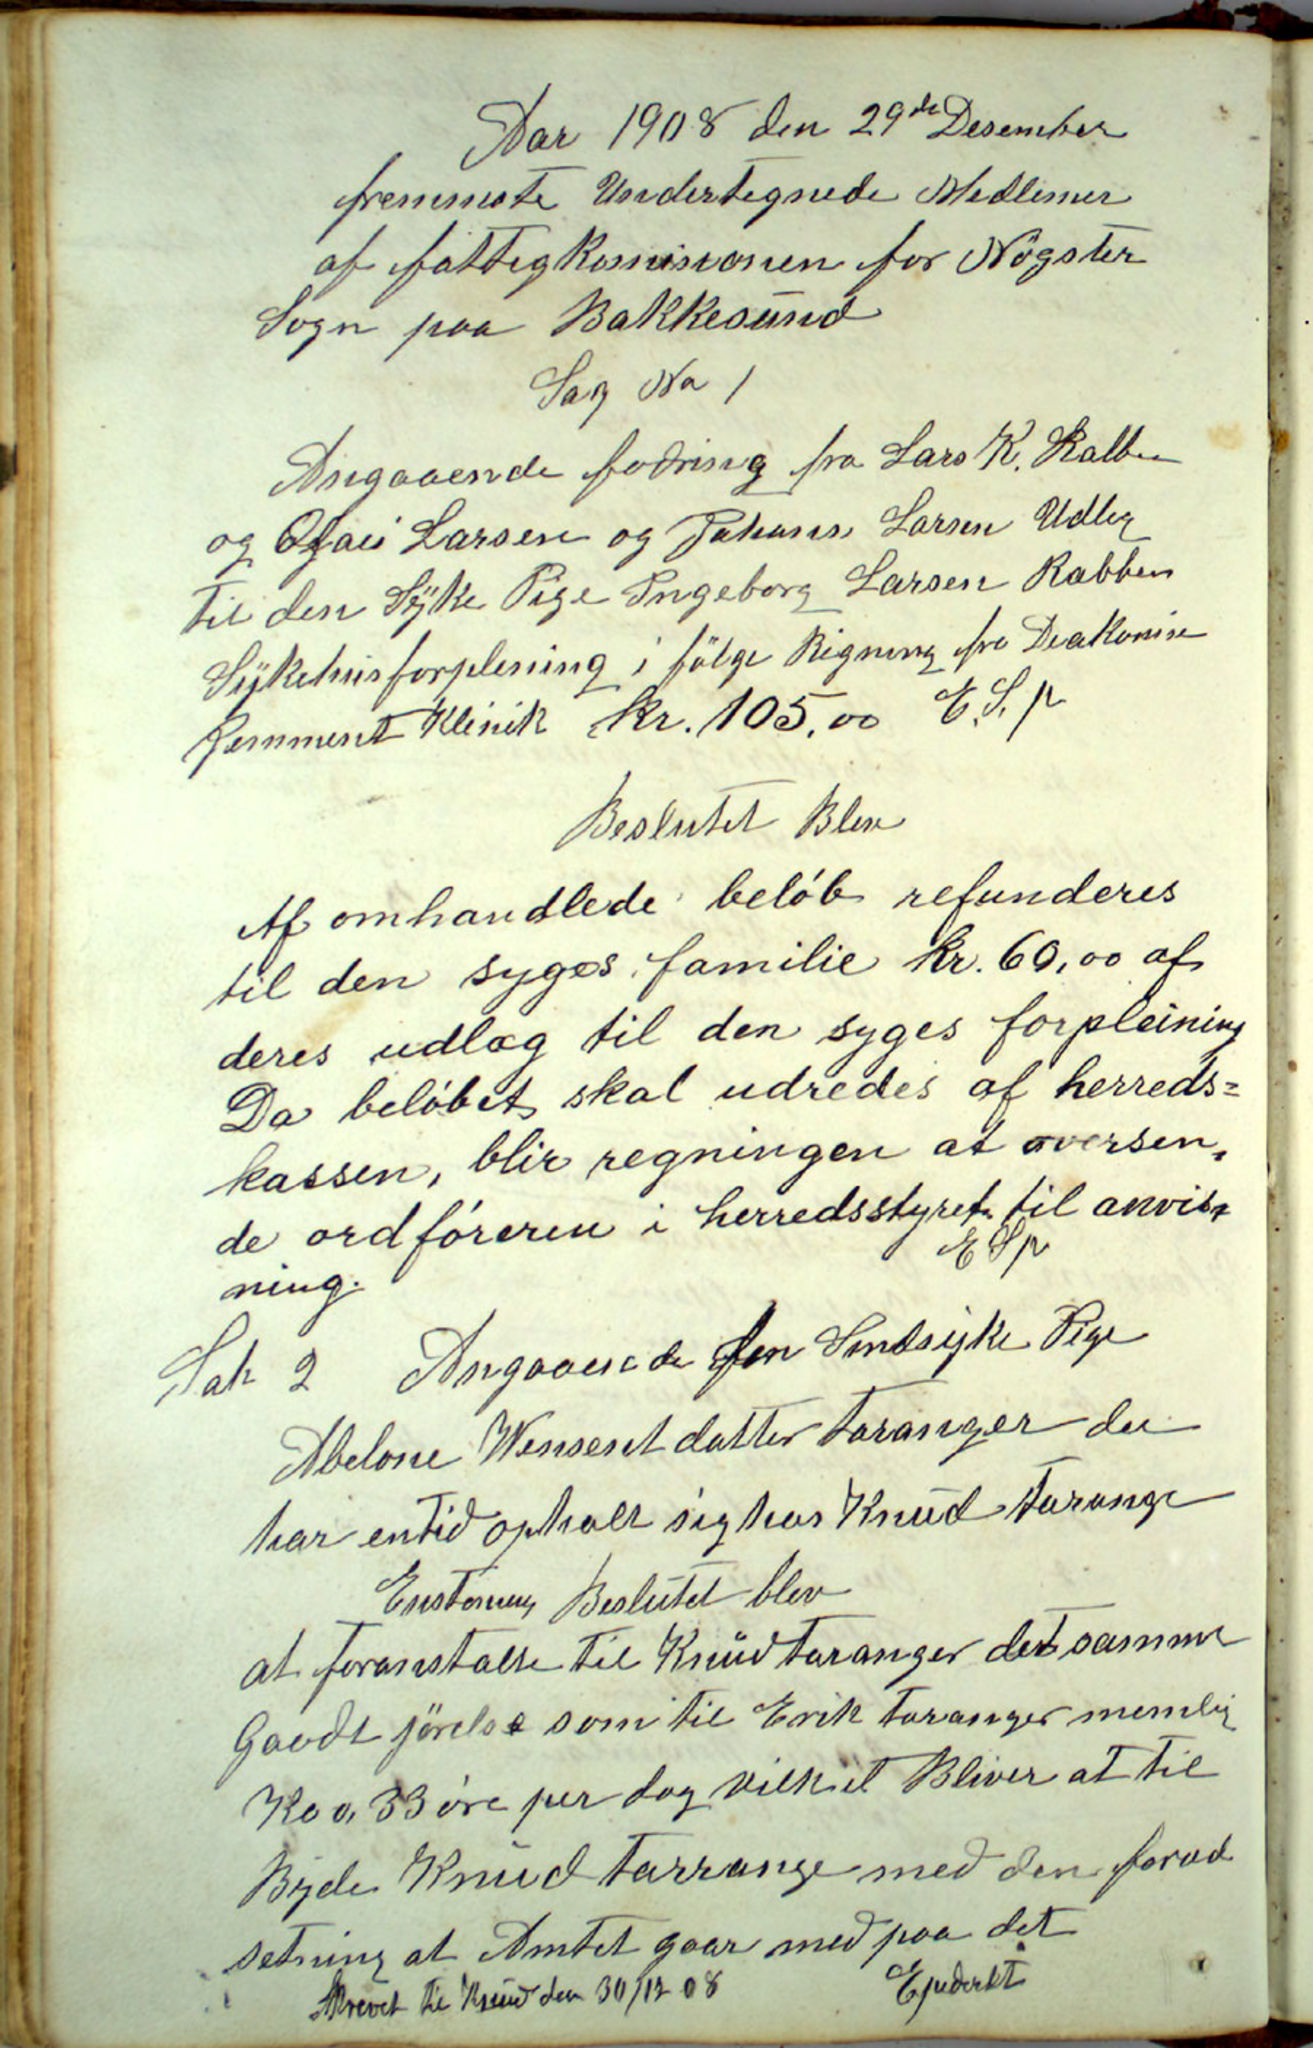 Aar 1908 den 29de Desember
fremmøte Undertegnede Medlemer
af fattigkomisionen for Møgster
Sogn paa Bakkesund
Sag No 1
Angaaende fodring fra Lars K. Rabben
og Larsen og Johans Larsen Udleg
til den Syke Pige Ingeborg Larsen Rabben
Sykehusforplening i følge Rigning fra Diakonise
Klinik kr. 105,00 E. S. p
Beslutet Blev
Af omhandlede beløb refunderes
til den syges familie kr. 60,00 af
deres udlæg til den syges forpleining
Da beløbet skal udredes af herreds=
kassen, blir regningen at oversen-
de ordføreren i herredsstyret til anvis-
ning. E S p
Sak 2 Angaaende den Sindsyke Pige
Abelone Wensent datter Taranger der
har en tid opholt sig hos Knud Tarange
Enstemig Beslutet blev
at foranstalte til Knud Taranger det samme
Goodt jørelse som til Erik Taranger nemlig
Kr 0,33 øre per dag vilket Bliver at til
Byde Knud Tarrange med den forud
setning at Amtet gaar med paa det
Skrevet til Knud den 30/12 08